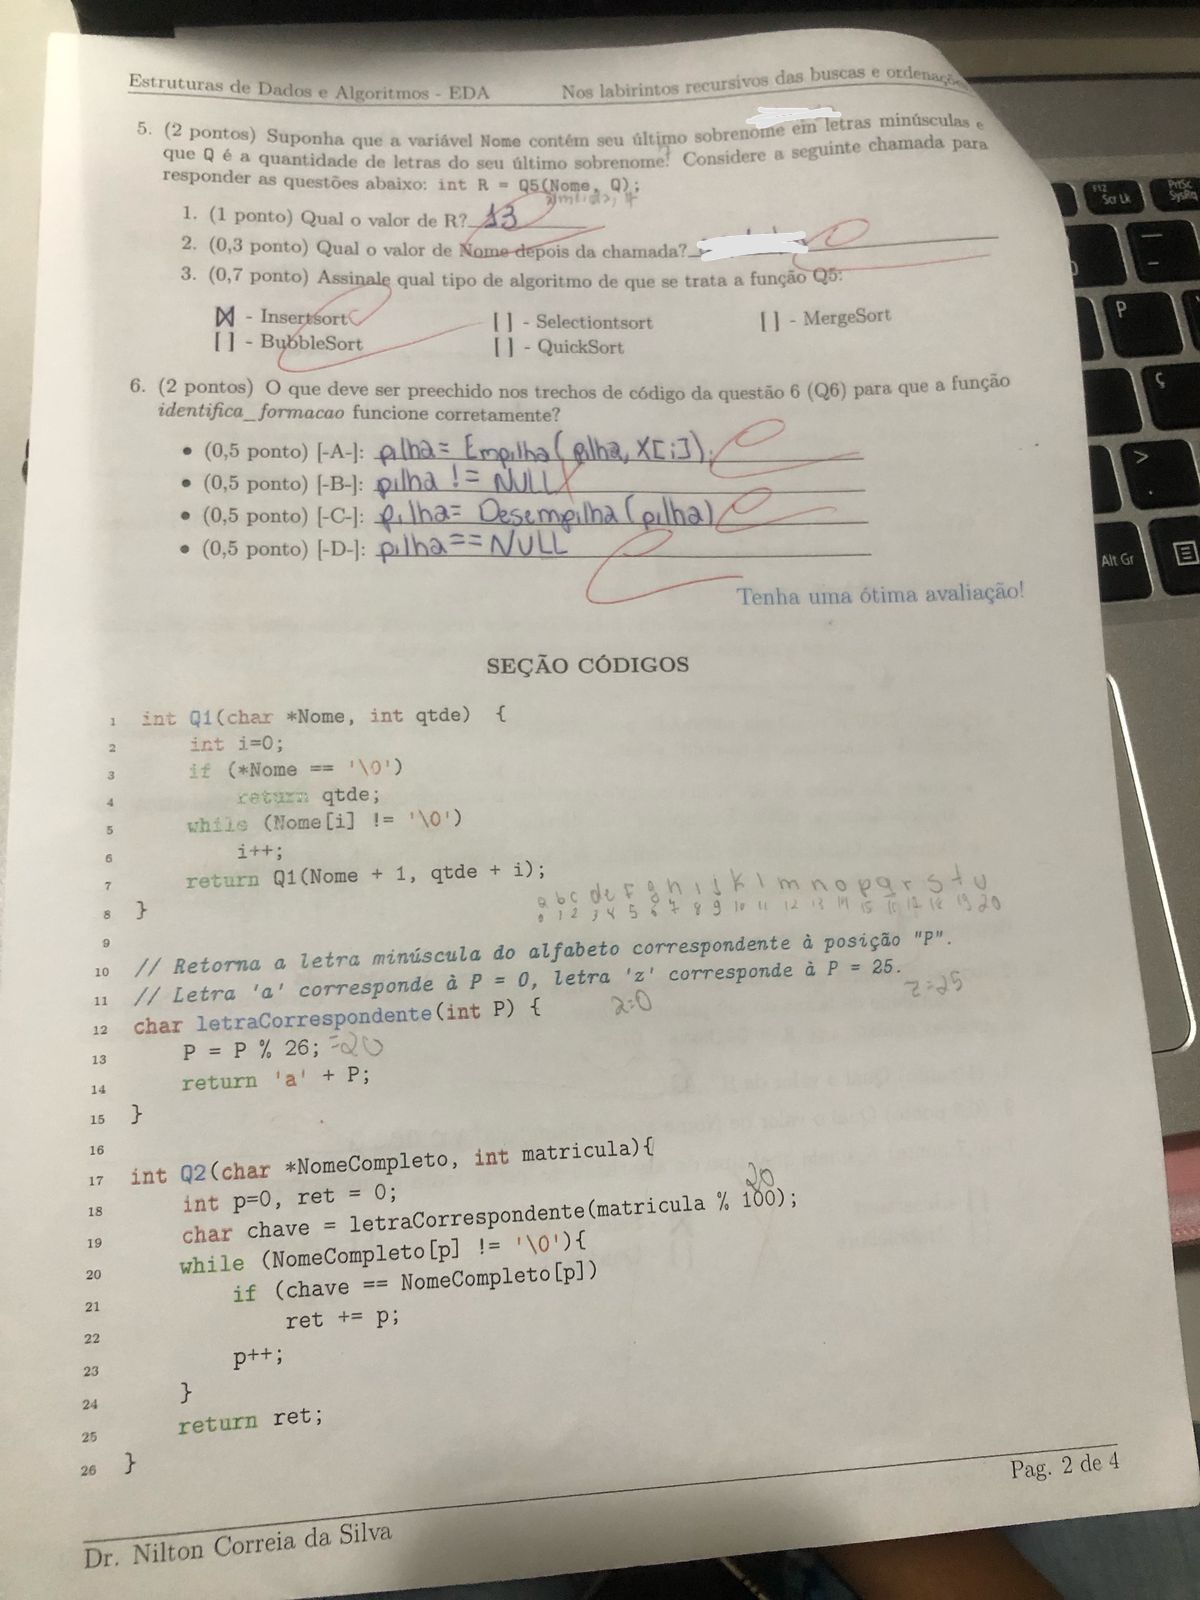 Estruturas de Dados e Algoritmos - EDA Nos labirintos recursivos das buscas e ordenações
5. (2 pontos) Suponha que a variável Nome contém seu último sobrenome em letras minúsculas e
que Q é a quantidade de letras do seu último sobrenome! Considere a seguinte chamada para
responder as questões abaixo: int R = Q5(Nome, Q);
1. (1 ponto) Qual o valor de R? 13
2. (0,3 ponto) Qual o valor de Nome depois da chamada?
3. (0,7 ponto) Assinale qual tipo de algoritmo de que se trata a função Q5:
[X] - Insertsort [ ] - Selectiontsort [ ] - MergeSort
[ ] - BubbleSort [ ] - QuickSort
6. (2 pontos) O que deve ser preechido nos trechos de código da questão 6 (Q6) para que a função
identifica_formacao funcione corretamente?
• (0,5 ponto) [-A-]: pilha = Empilha(pilha, X[i]);
• (0,5 ponto) [-B-]: pilha != NULL
• (0,5 ponto) [-C-]: pilha = Desempilha(pilha)
• (0,5 ponto) [-D-]: pilha == NULL
Tenha uma ótima avaliação!
SEÇÃO CÓDIGOS
1 int Q1(char *Nome, int qtde) {
2 int i=0;
3 if (*Nome == '\0')
4 return qtde;
5 while (Nome[i] != '\0')
6 i++;
7 return Q1(Nome + 1, qtde + i);
a b c d e f g h i j k l m n o p q r s t u
8 }
0 1 2 3 4 5 6 7 8 9 10 11 12 13 14 15 16 17 18 19 20
9
10 // Retorna a letra minúscula do alfabeto correspondente à posição "P".
11 // Letra 'a' corresponde à P = 0, letra 'z' corresponde à P = 25.
a=0 z=25
12 char letraCorrespondente(int P) {
13 P = P % 26; =20
14 return 'a' + P;
15 }
16
17 int Q2(char *NomeCompleto, int matricula){
18 int p=0, ret = 0;
20
19 char chave = letraCorrespondente(matricula % 100);
20 while (NomeCompleto[p] != '\0'){
21 if (chave == NomeCompleto[p])
22 ret += p;
23 p++;
24 }
25 return ret;
26 }
Pag. 2 de 4
Dr. Nilton Correia da Silva
F12
Scr Lk
PrtSc
SysRq
P
Ç
>
Alt Gr